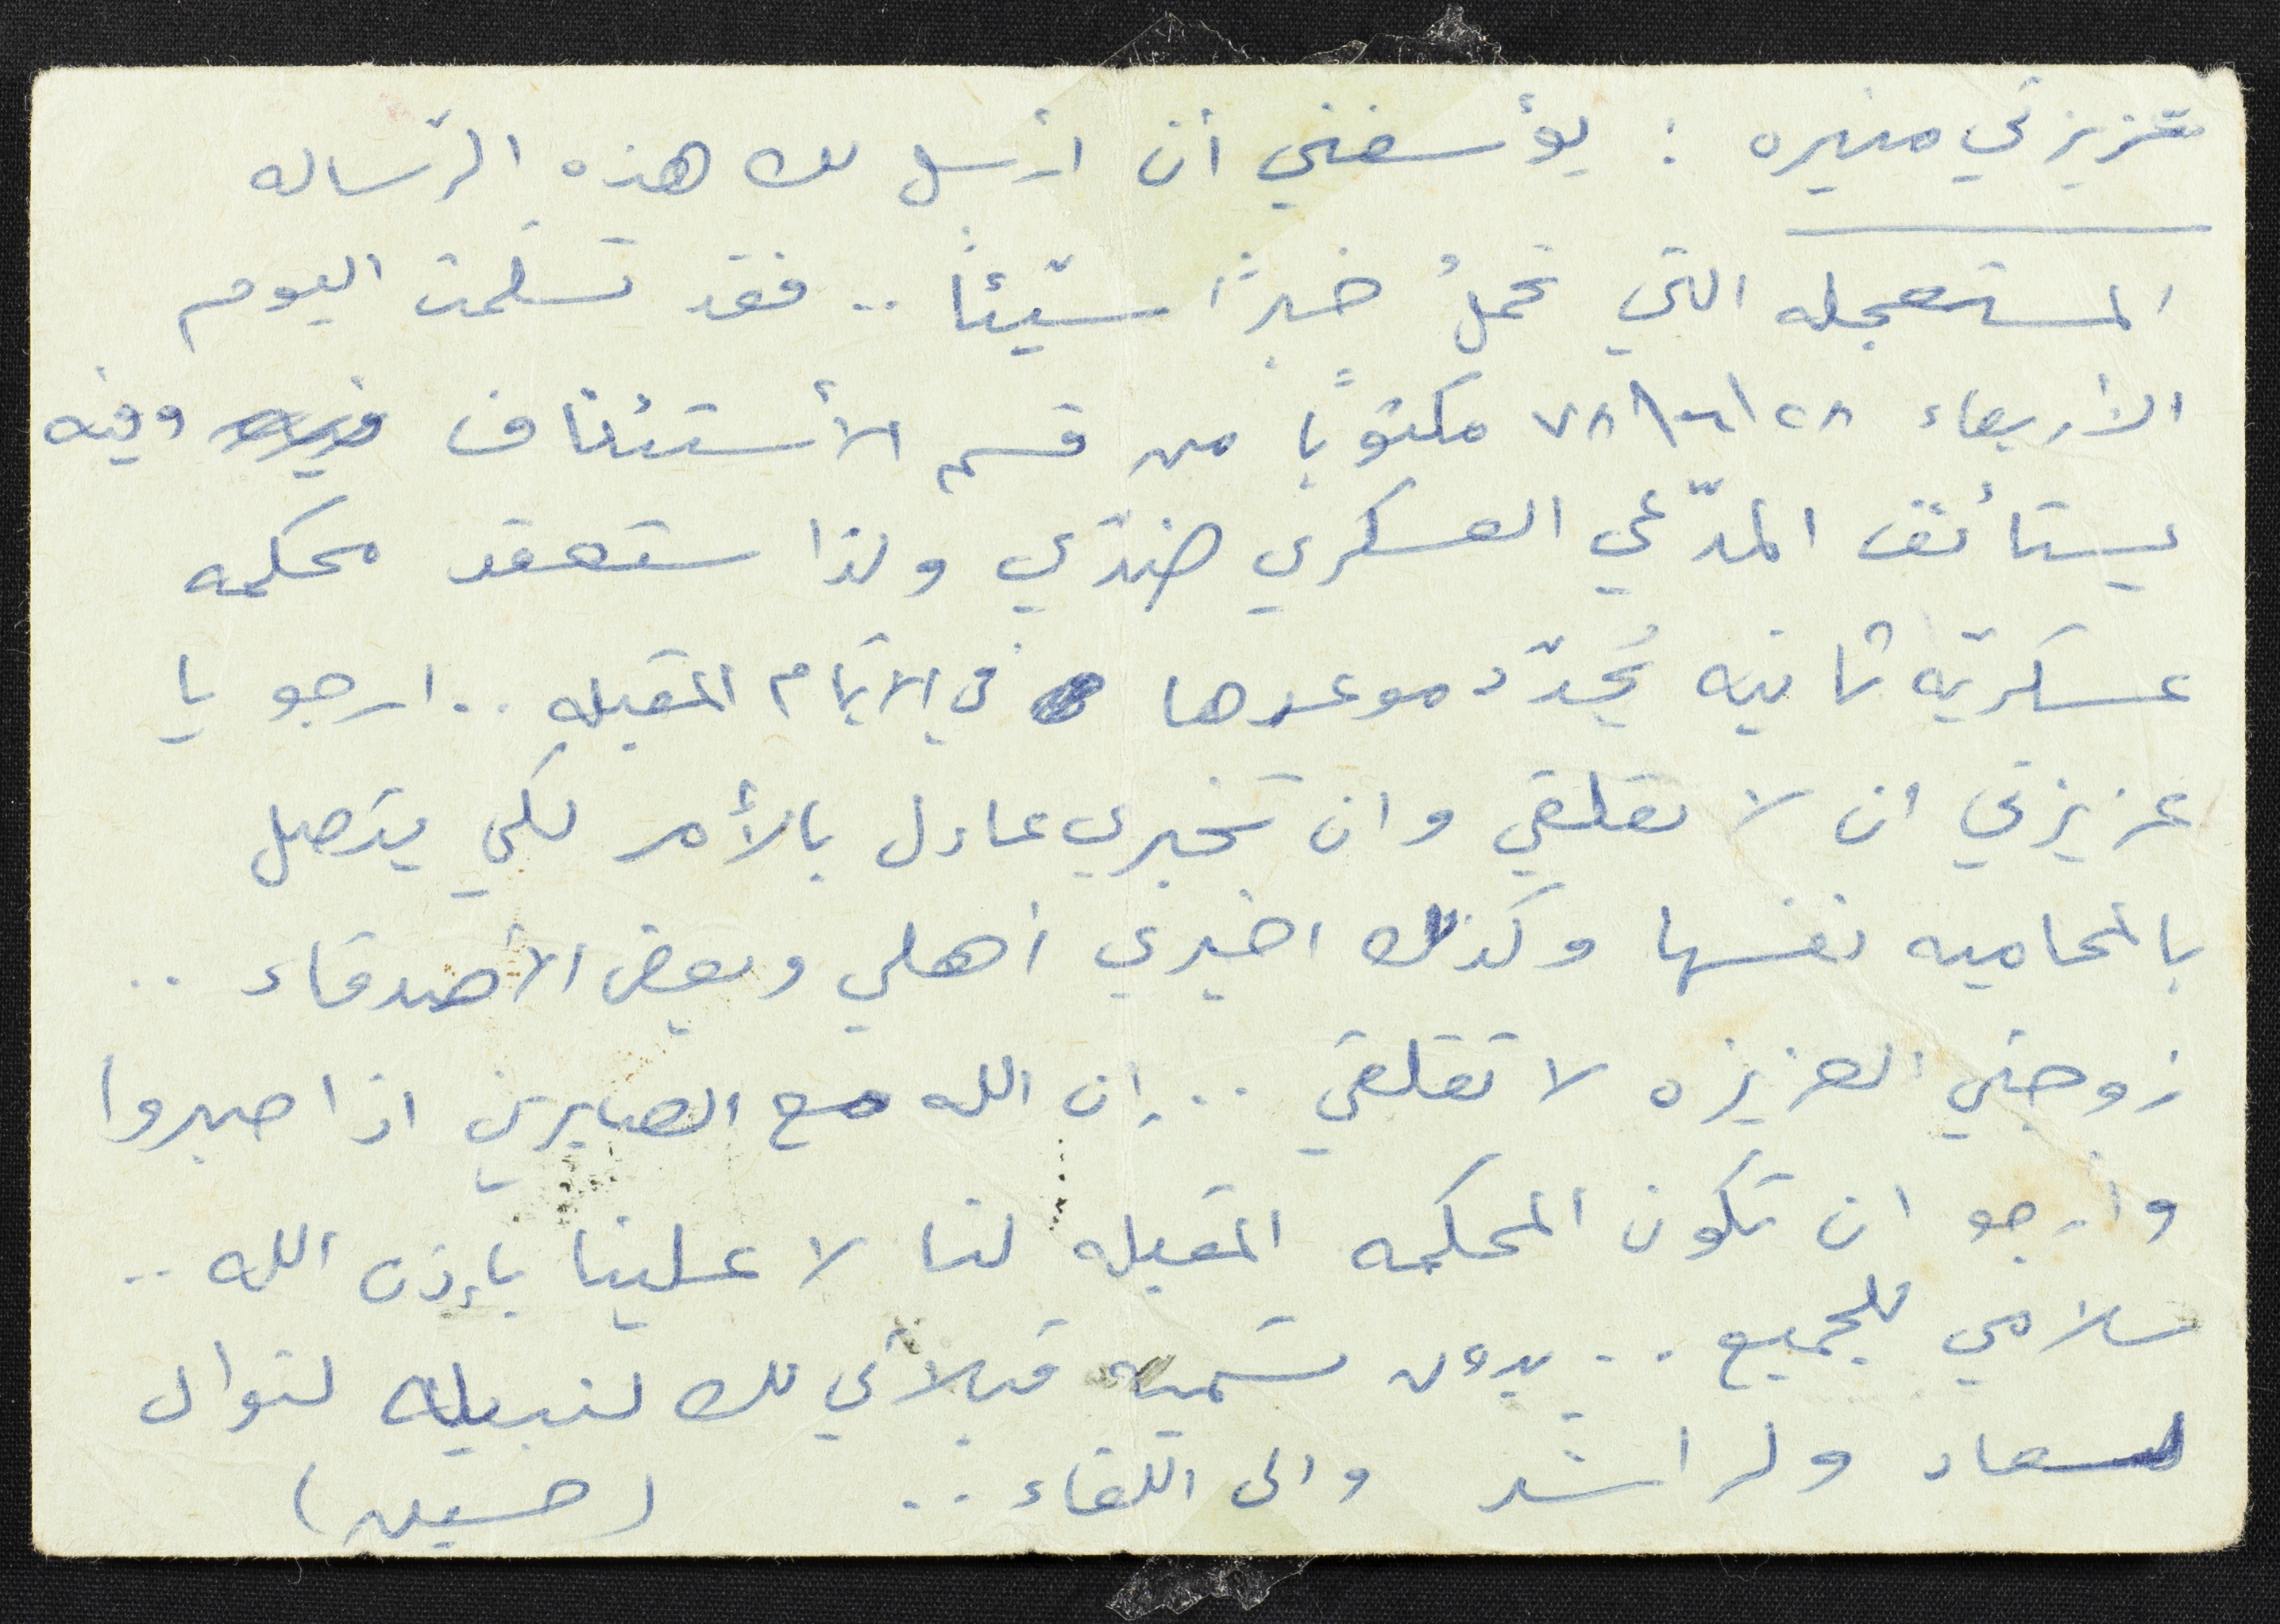 عزيزتي منيره : يؤسفني أن ارسل لك هذه الرّساله
المستعجله التي تحملُ خبرًا سيّئًا .. فقد تسلّمت اليوم
الأربعاء ٢٨/٦/٧٨ مكتوبًا من قسم الأستئناف وفيه
يستأنف المدّعي العسكري ضدّي ولذا ستعقد محكمه
عسكريّه ثانيه يُحدّد موعدها في الايّام المقبله .. ارجو يا
عزيزتي ان لا تقلقي وان تخبري عادل بالأمر لكي يتصل
بالمحاميه نفسها وكذلك اخبري أهلي وبعض الأصدقاء ..
زوجتي العزيزه لا تقلقي .. إن الله مع الصابرين اذا صبروا
وأرجو ان تكون المحكمه المقبله لنا لا علينا بإذن الله ..
سلامي للجميع .. بدون تسميه قبلاتي لك لنبيله لنوال
لسعاد ولراشد والى اللقاء .. (حسين)